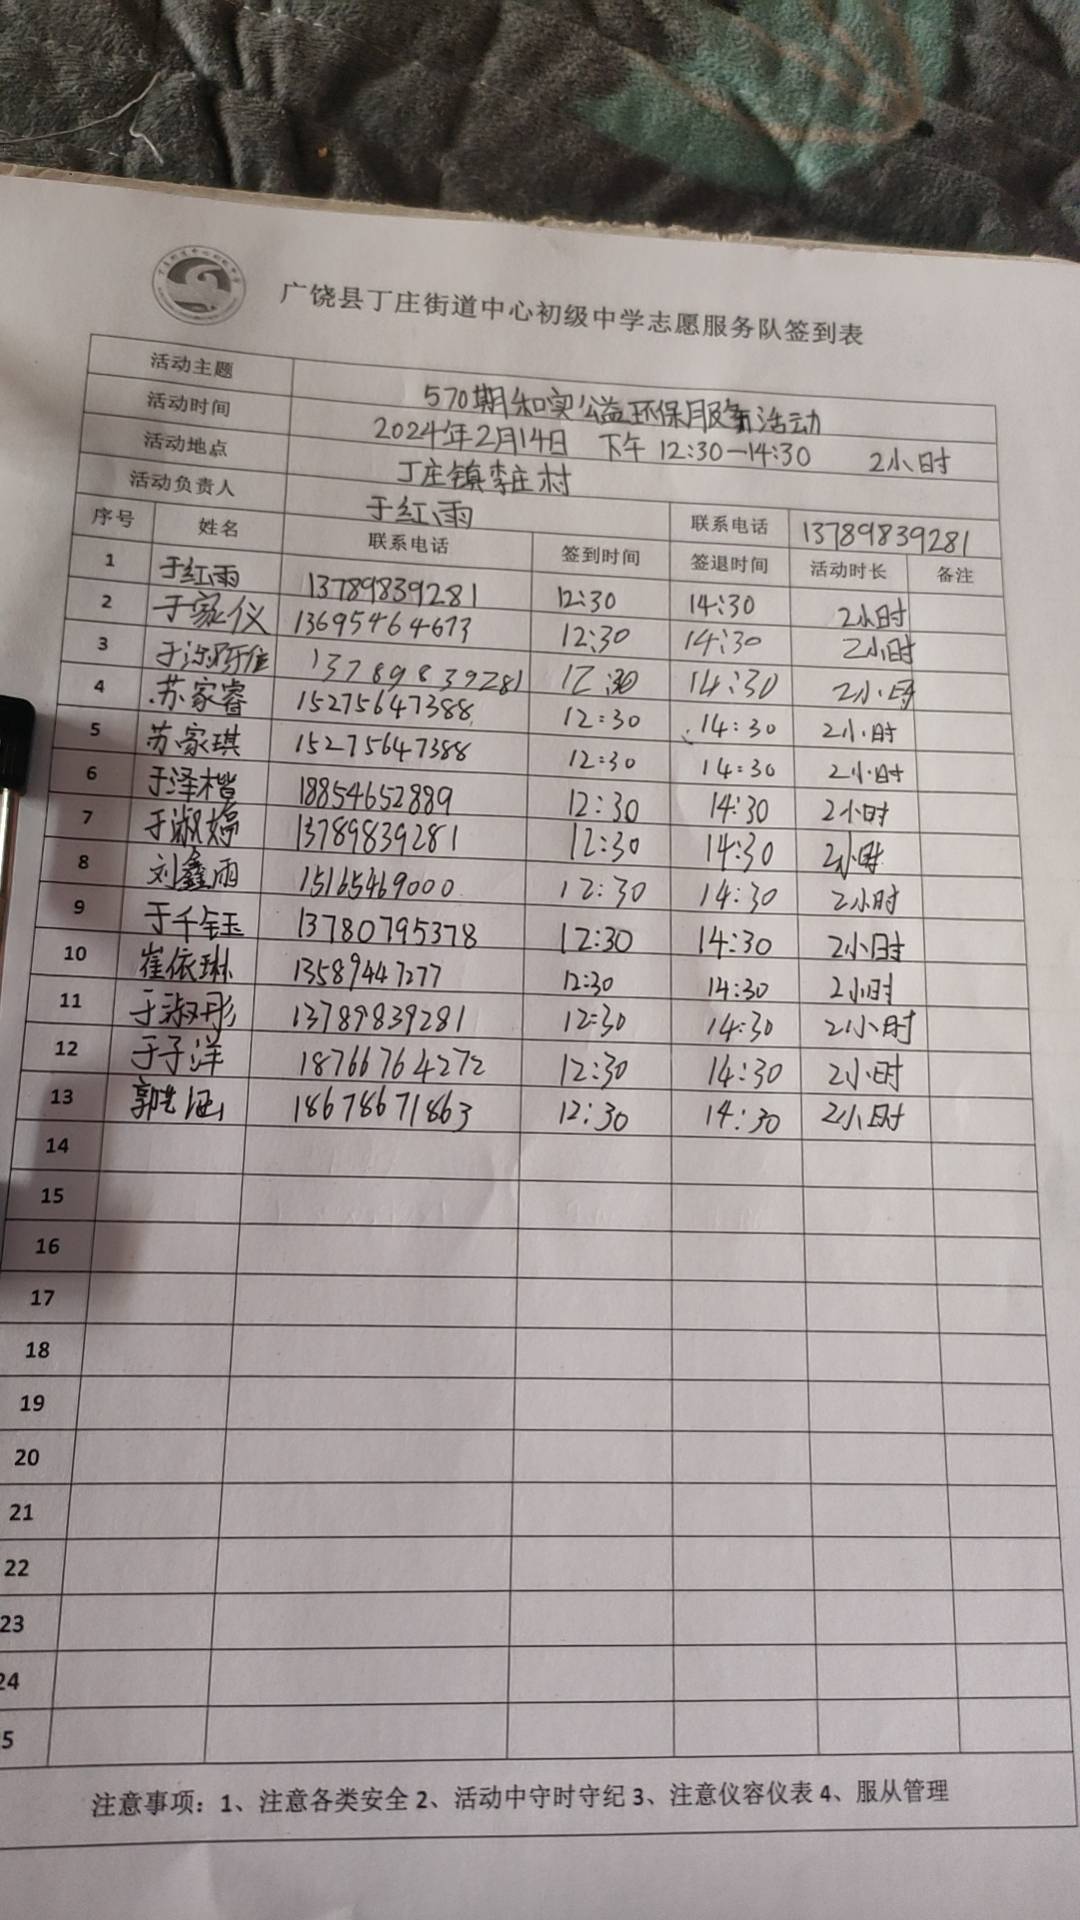 广饶县丁庄街道中心初级中学志愿服务队签到表
活动主题 570期和实公益环保服务活动
活动时间 2024年2月14日 下午 12:30—14:30 2小时
活动地点 丁庄镇李庄村
活动负责人 于红雨 联系电话 13789839281
序号 姓名 联系电话 签到时间 签退时间 活动时长 备注
1 于红雨 13789839281 12:30 14:30 2小时
2 于家仪 13695464673 12:30 14:30 2小时
3 于 13789839281 12:30 14:30 2小时
4 苏家睿 15275647388 12:30 14:30 2小时
5 苏家琪 15275647388 12:30 14:30 2小时
6 于泽楷 18854652889 12:30 14:30 2小时
7 于淑婷 13789839281 12:30 14:30 2小时
8 刘鑫雨 15165469000 12:30 14:30 2小时
9 于千钰 13780795378 12:30 14:30 2小时
10 崔依琳 13589447277 12:30 14:30 2小时
11 于淑彤 13789839281 12:30 14:30 2小时
12 于子洋 18766764272 12:30 14:30 2小时
13 郭 18678671863 12:30 14:30 2小时
14
15
16
17
18
19
20
21
22
23
24
5
注意事项：1、注意各类安全 2、活动中守时守纪 3、注意仪容仪表 4、服从管理